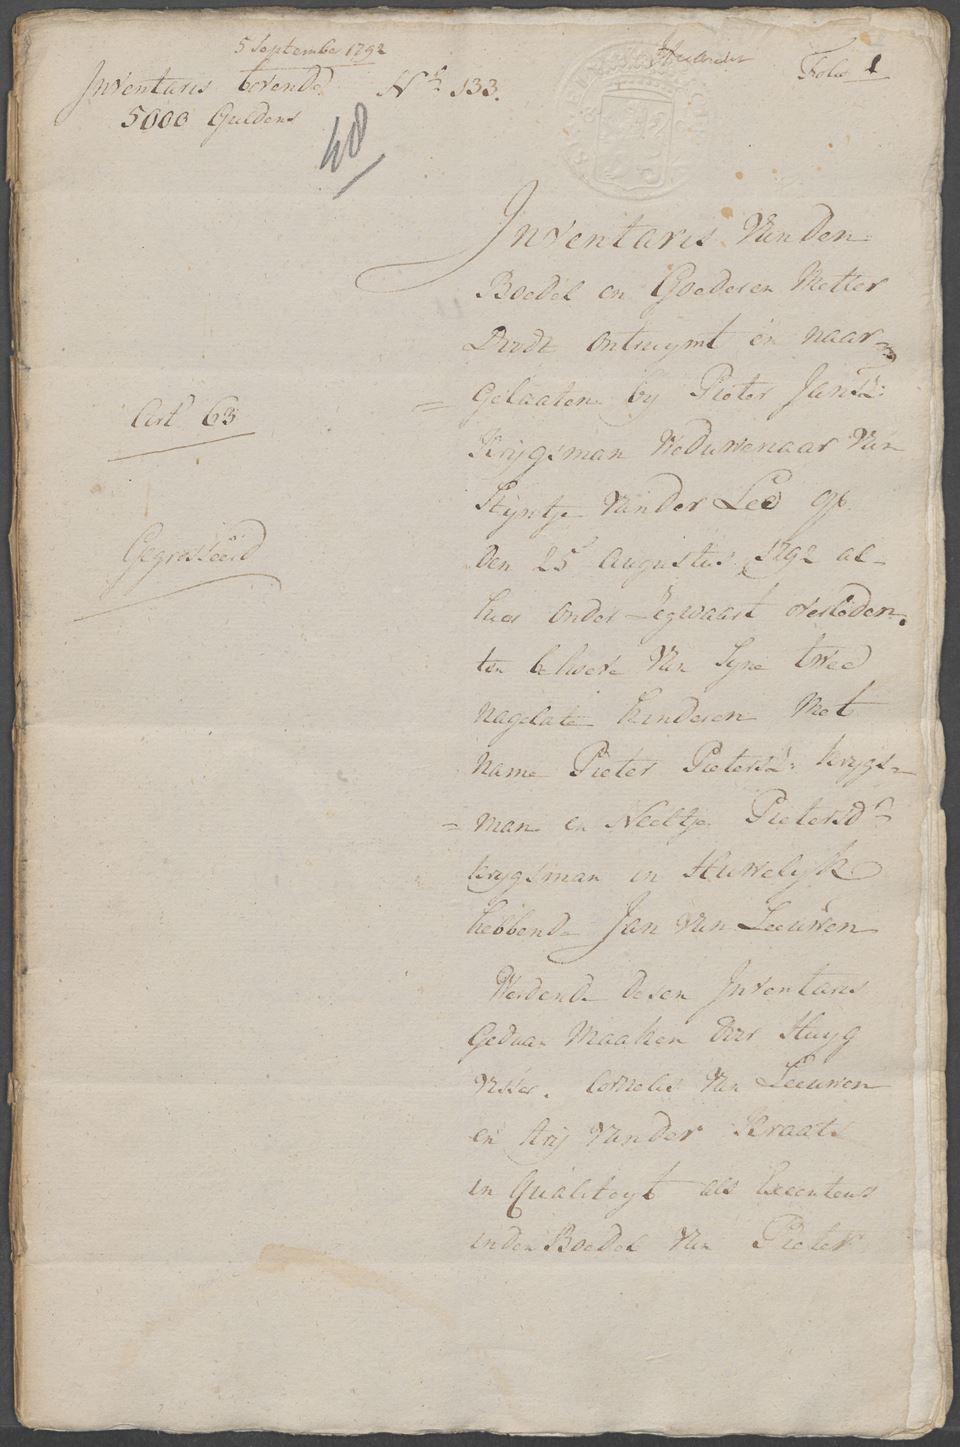 5 September 1792
Inventaris bovende N.r 133.
5000 Guldens
Folio 1
40
Inventaris Van den
Boedel en Goederen Metter
Dood ontruymt en naar=
gelaaten by Pieter Jansz:
Krygsman Weduwenaar Van
Styntje Van der Lee op
Art.l 63
den 25.e Augustus 1792 al=
hier onder Zegwaart overleden.
Gegrosseerd
ten behoeve Van Syne twee
nagelate kinderen Met
name Pieter Pietersz: krygs=
man en Neeltje Pietersd.r
krygsman in Huwelyk
hebbende Jan Van Leeuwen
Werdende desen Inventaris
Gedaan Maaken door Huyg
Visser. Cornelis Van Leeuwen
en Arij Van der Kraats
in Qualiteyt als Executeurs
in den Boedel Van Pieter